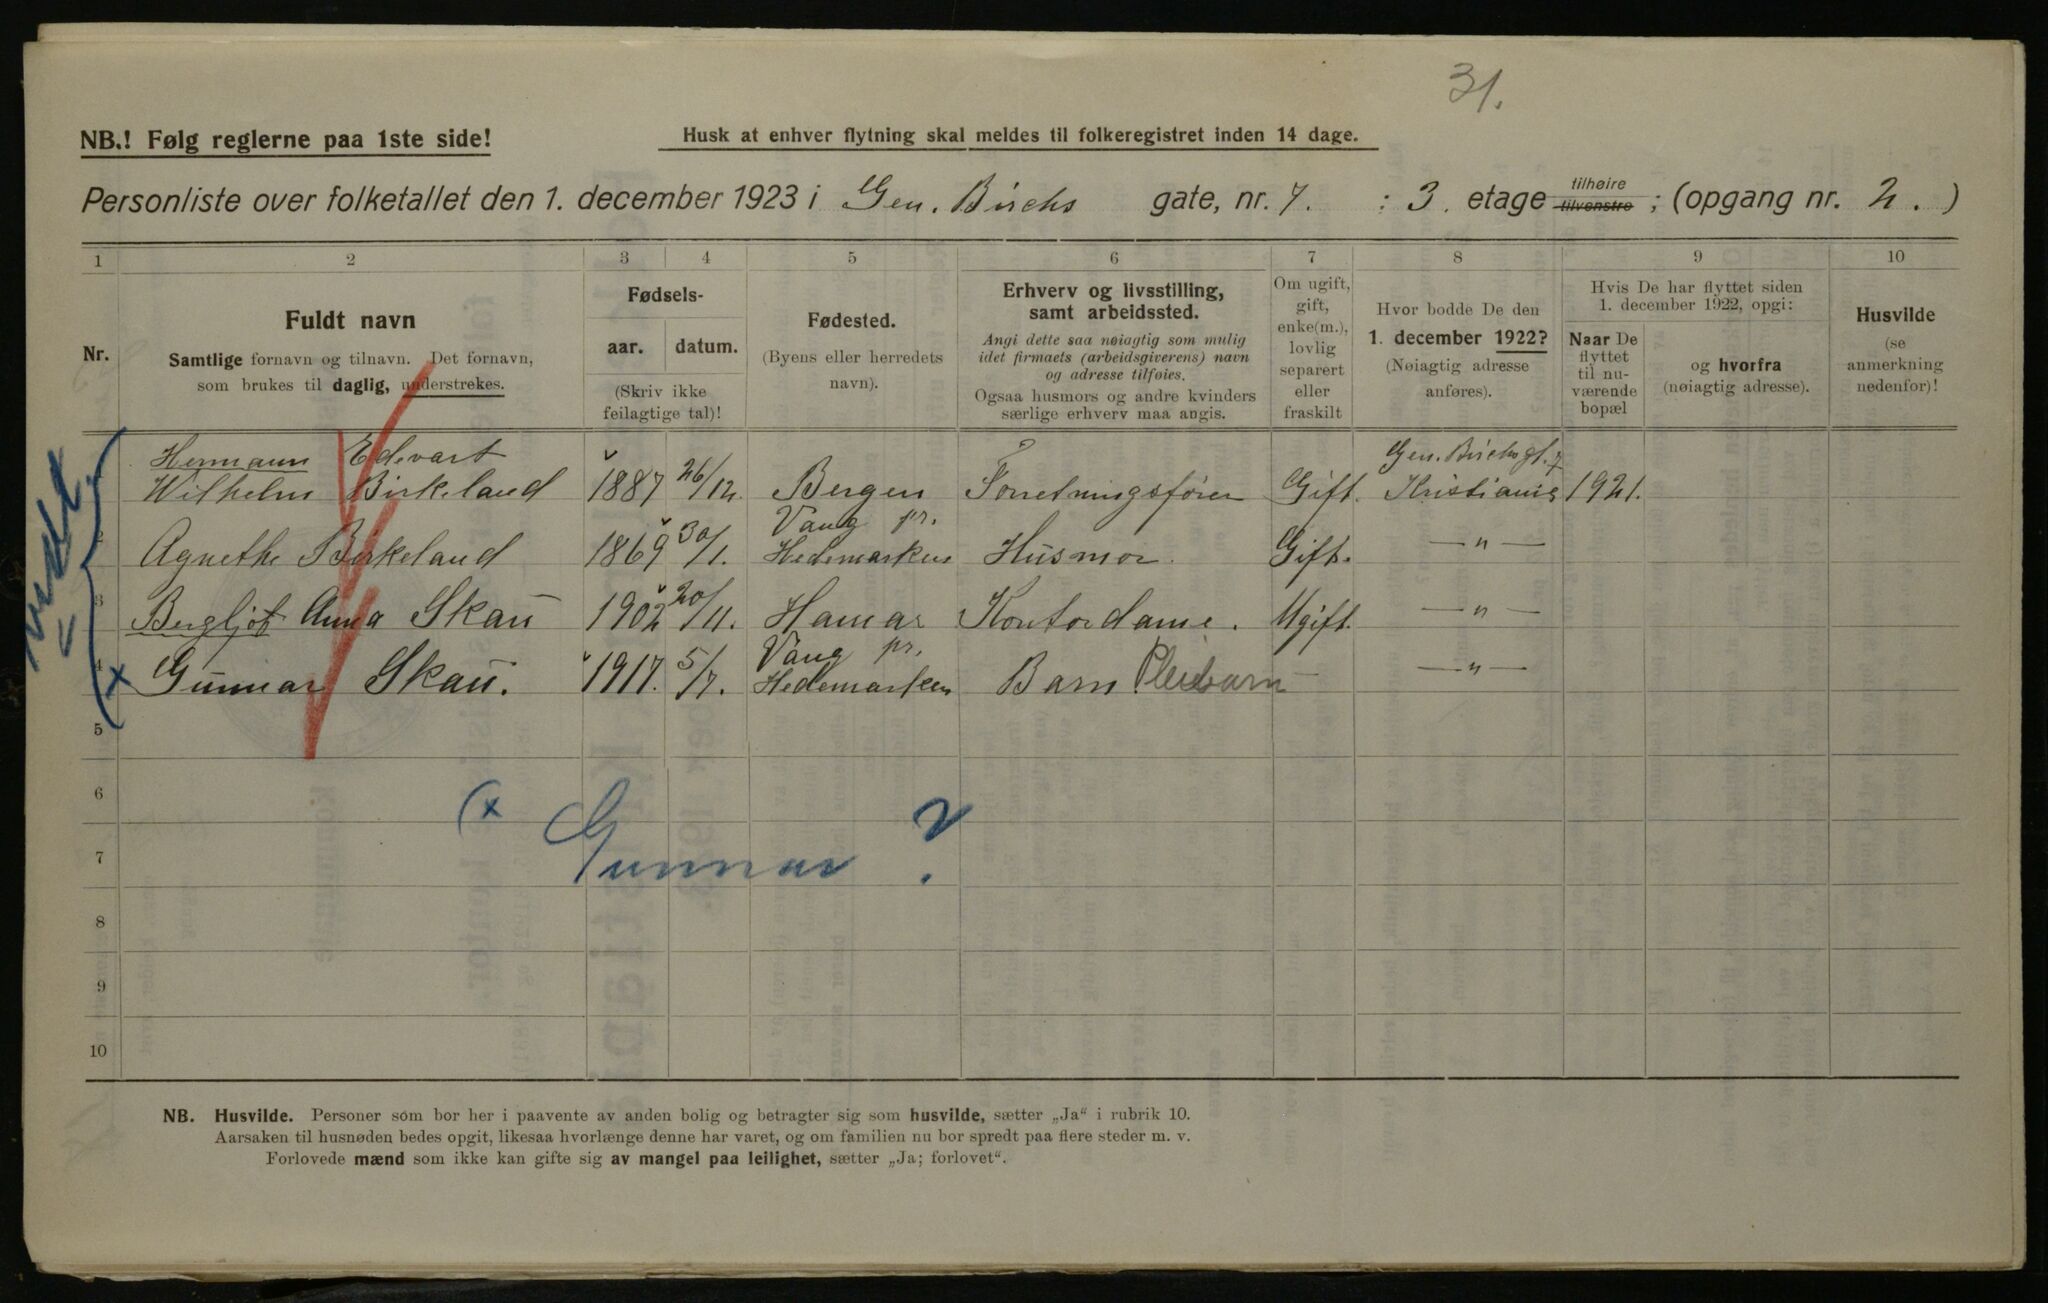 31.
NB.! Følg reglerne paa 1ste side!
Husk at enhver flytning skal meldes til folkeregistret inden 14 dage.
Personliste over folketallet den 1. december 1923 i Gen. Birchs gate, nr. 7. : 3. etage tilhøire tilvenstre ; (opgang nr. 2. )
1 2 3 4 5 6 7 8 9 10
Nr.
Fuldt navn
Samtlige fornavn og tilnavn. Det fornavn,
som brukes til daglig, understrekes.
Fødsels-
aar. datum.
(Skriv ikke
feilagtige tal)!
Fødested.
(Byens eller herredets
navn).
Erhverv og livsstilling,
samt arbeidssted.
Angi dette saa nøiagtig som mulig
idet firmaets (arbeidsgiverens) navn
og adresse tilføies.
Ogsaa husmors og andre kvinders
særlige erhverv maa angis.
Om ugift,
gift,
enke(m.),
lovlig
separert
eller
fraskilt
Hvor bodde De den
1. december 1922?
(Nøiagtig adresse
anføres).
Hvis De har flyttet siden
1. december 1922, opgi:
Naar De
flyttet
til nu-
værende
bopæl
og hvorfra
(nøiagtig adresse).
Husvilde
(se
anmerkning
nedenfor)!
Hermann Edevart Gen. Birchsgt. 7
Wilhelm Birkeland 1887 26/12. Bergen Forretningsfører Gift. Kristiania 1921.
Vang pr.
2 Agnethe Birkeland 1869 30/1. Hedemarken Husmor. Gift. —"—
3 Bergljot Anna Skau 1902 20/11. Hamar Kontordame. Ugift. —"—
Vang pr.
4 x Gunnar Skau. 1917. 5/7. Hedemarken Barn Pleiebarn —"—
5
6
(x Gunnar ?
7
8
9
10
NB. Husvilde. Personer som bor her i paavente av anden bolig og betragter sig som husvilde, sætter „Ja“ i rubrik 10.
Aarsaken til husnøden bedes opgit, likesaa hvorlænge denne har varet, og om familien nu bor spredt paa flere steder m. v.
Forlovede mænd som ikke kan gifte sig av mangel paa leilighet, sætter „Ja; forlovet“.